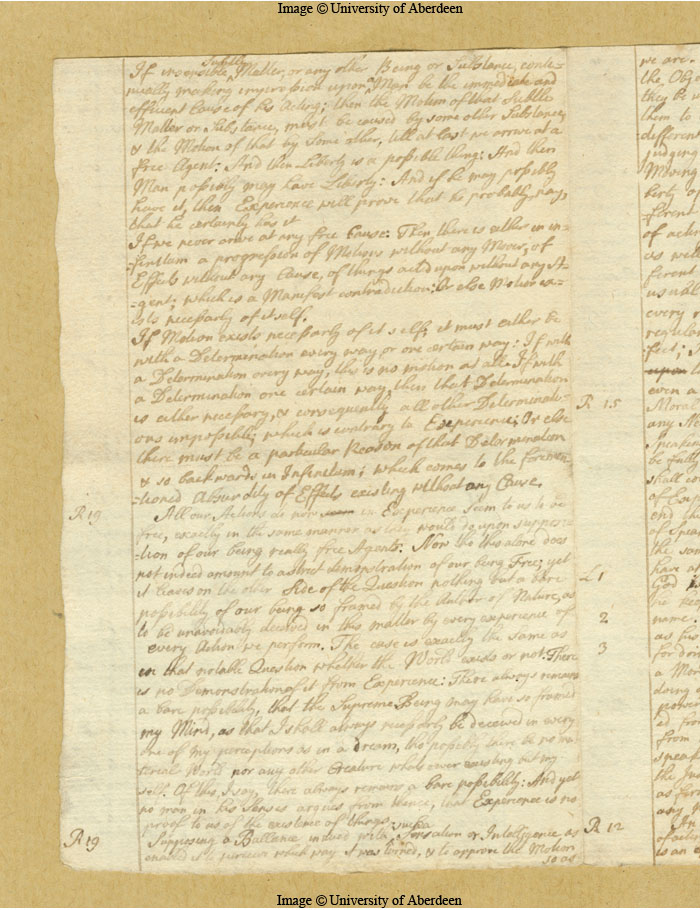 Image © University of Aberdeen
Subtile
If insensible Matter, or any other Being or Substance, conti-
nually making impression upon a Man be the immediate and
efficient Cause of his Acting; then the Motion of that Subtle
Matter or Substance, must be caused by some other Substance,
& the Motion of that by some other, till at last we arrive at a
free Agent: And then Liberty is a possible thing: And then
Man possibly may have Liberty: And if he may possibly
have it, then Experience will prove that he probably, nay,
that he certainly has it
If we never arive at any free Cause: Then there is either in in-
-finitum a progression of Motions without any Mover, of
Effects without any Cause, of things acted upon without any A-
-gent; which is a Manifest contradiction: Or else Motion ex-
ists necessarly of it self.
If Motion exists necessarly of it self, it must either be
with a Determination every way or one certain way: If with
a Determination every way, this is no motion at all. If with
a Determination one certain way, then that Determination
is either necessary, & consequently all other Determinati-
ons impossible; which is contrary to Experience; Or else
there must be a particular Reason of that Determination
& so backwards in Infinitum; which comes to the foremen-
-tioned Absurdity of Effects existing without any Cause.
R 19
All our Actions do now in Experience seem to us to be
free, exactly in the same manner as they would do upon supposi-
-tion of our being really free Agents: Now tho this alone does
not indeed amount to a strict demonstration of our being Free; yet
it leaves on the other Side of the Question nothing but a bare
possibility of our being so framed by the Author of Nature, as
to be unavoidably deceived in this matter by every experience of
every Action we perform. The case is exactly the same as
in that notable Question whether the World exists or not. There
is no Demonstration of it from Experience: There always remains
a bare possibility, that the Supreme Being may have so framed
my Mind, as that I shall always necessarly be deceived in every
one of my perceptions as in a dream, tho possibly there be no ma-
terial World nor any other Creature whatsoever existing but my
self. Of this, I say, there always remains a bare possibility: And yet
no man in his Senses argues from thence, that Experience is no
proof to us of the existence of things.
R 19
such a
Supposing a Ballance indued with Sensation or Intelligence as
enabled it to perceive which way it was turned, & to approve the Motion
so as
we are.
the Obj
they be
them to
different
judging
Moving
berty
ferent
of acti
as well
ferent
usual
every
regular
fect;
upon
even a
R 15
Moral
any Ne
Speak
be
shall
of
and the
of Spea
the sa
have
L 1
God
be
2
name.
as
3
for
a Mor
doing
power
ed from
from
speak
the
as
R 12
any
In
of
is an
Image © University of Aberdeen